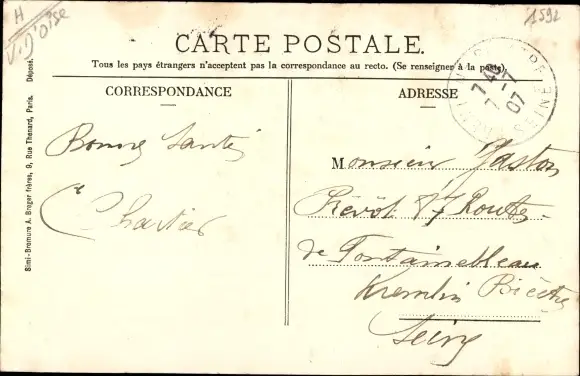 H
V. D'Oise
1592
CARTE POSTALE.
Tous les pays étrangers n'acceptent pas la correspondance au recto. (Se renseigner à la poste).
CORRESPONDANCE
ADRESSE
Bonne Santé
Chartier
Monsieur Gaston
Prévôt 87 Route
de Fontainebleau
Kremlin Bicêtre
Seine
7 45
7 - 7
07
SEINE
Simi-Bromure A. Breger frères, 9, Rue Thenard, Paris. Déposé.